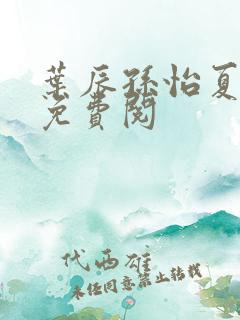 葉辰孫怡夏
免費閱
代西雄
未经同意禁止转载